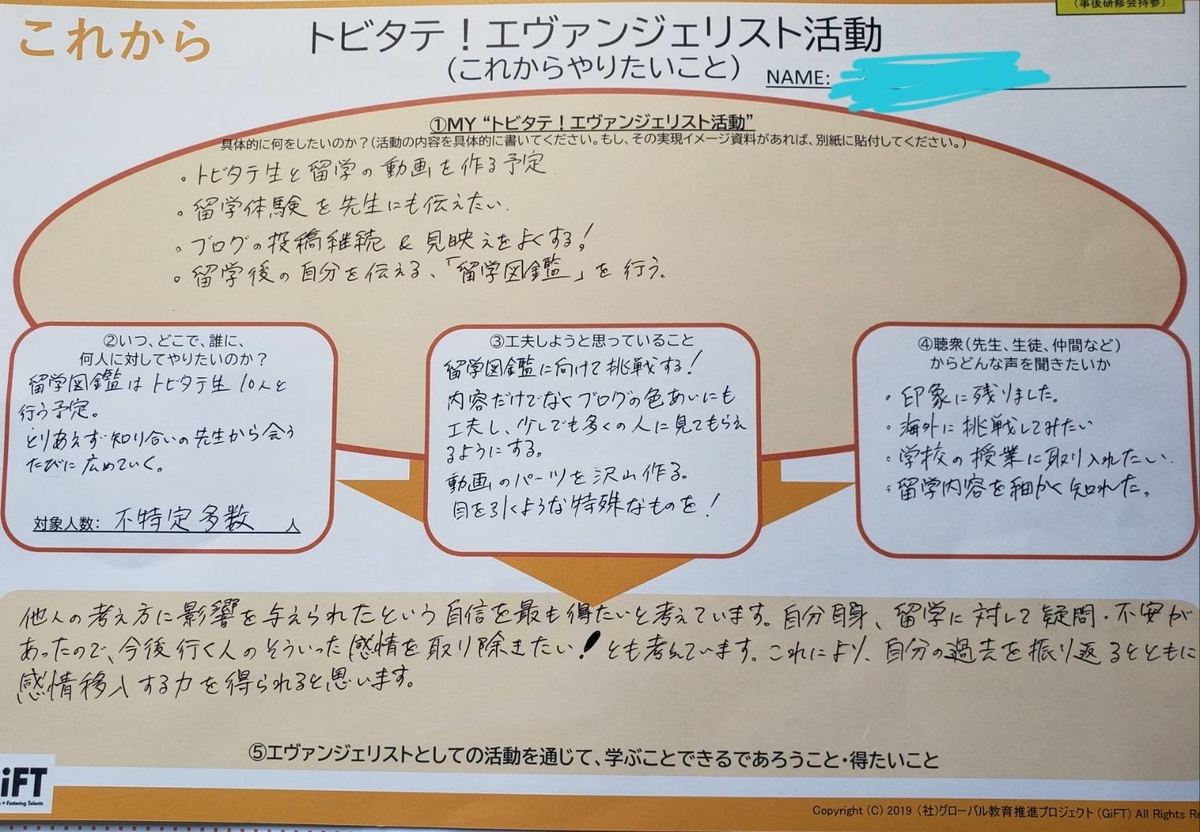 (事後研修会持参)
これから
トビタテ！エヴァンジェリスト活動
(これからやりたいこと)
NAME:
①MY “トビタテ！エヴァンジェリスト活動”
具体的に何をしたいのか？(活動の内容を具体的に書いてください。もし、その実現イメージ資料があれば、別紙に貼付してください。)
・トビタテ生と留学の動画を作る予定
・留学体験を先生にも伝えたい.
・ブログの投稿継続 & 見映えをよくする！
・留学後の自分を伝える、「留学図鑑」を行う.
②いつ、どこで、誰に、
何人に対してやりたいのか？
留学図鑑はトビタテ生10人と
行う予定。
とりあえず知り合いの先生から会う
たびに広めていく。
対象人数: 不特定多数 人
③工夫しようと思っていること
留学図鑑に向けて挑戦する！
内容だけでなくブログの色あいにも
工夫し、少しでも多くの人に見てもらえ
るようにする。
動画のパーツを沢山作る。
目を引くような特殊なものを！
④聴衆(先生、生徒、仲間など)
からどんな声を聞きたいか
・印象に残りました。
・海外に挑戦してみたい
・学校の授業に取り入れたい.
・留学内容を細かく知れた。
他人の考え方に影響を与えられたという自信を最も得たいと考えています。自分自身、留学に対して疑問・不安が
あったので、今後行く人のそういった感情を取り除きたい！とも考えています。これにより、自分の過去を振り返るとともに
感情移入する力を得られると思います。
⑤エヴァンジェリストとしての活動を通じて、学ぶことできるであろうこと・得たいこと
iFT
Fostering Talents
Copyright (C) 2019 (社)グローバル教育推進プロジェクト (GiFT) All Rights R